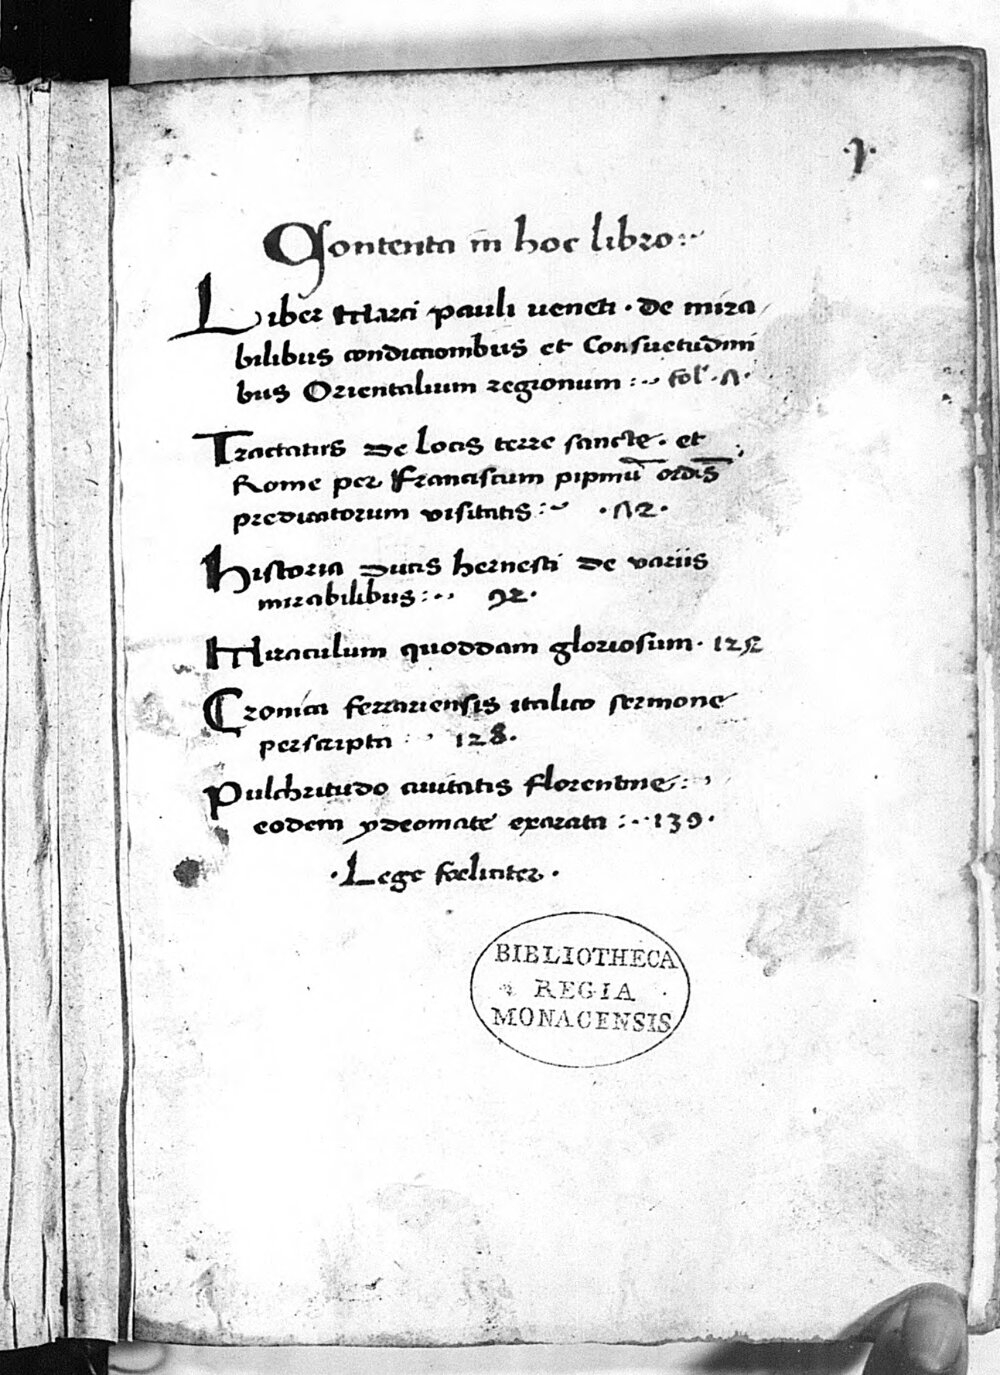 ·1·
Contenta in hoc libro :~
Liber Marci pauli veneti · de mira
bilibus condicionibus et Consuetudini
bus Orientalium regionum :~ fol · 7 ·
Tractatus de Locis terre sancte · et
Rome per Franciscum pipinū ordīs
predicatorum visitatis :~ · 72 ·
Historia Ducis hernesti de variis
mirabilibus :~ 92 ·
Miraculum quoddam gloriosum · 125
Cronica ferrariensis italico sermone
perscripta :~ 128 ·
Pulchritudo civitatis florentine :~
eodem ydeomate exarata :~ 139 ·
· Lege foeliciter ·
BIBLIOTHECA
REGIA
MONACENSIS